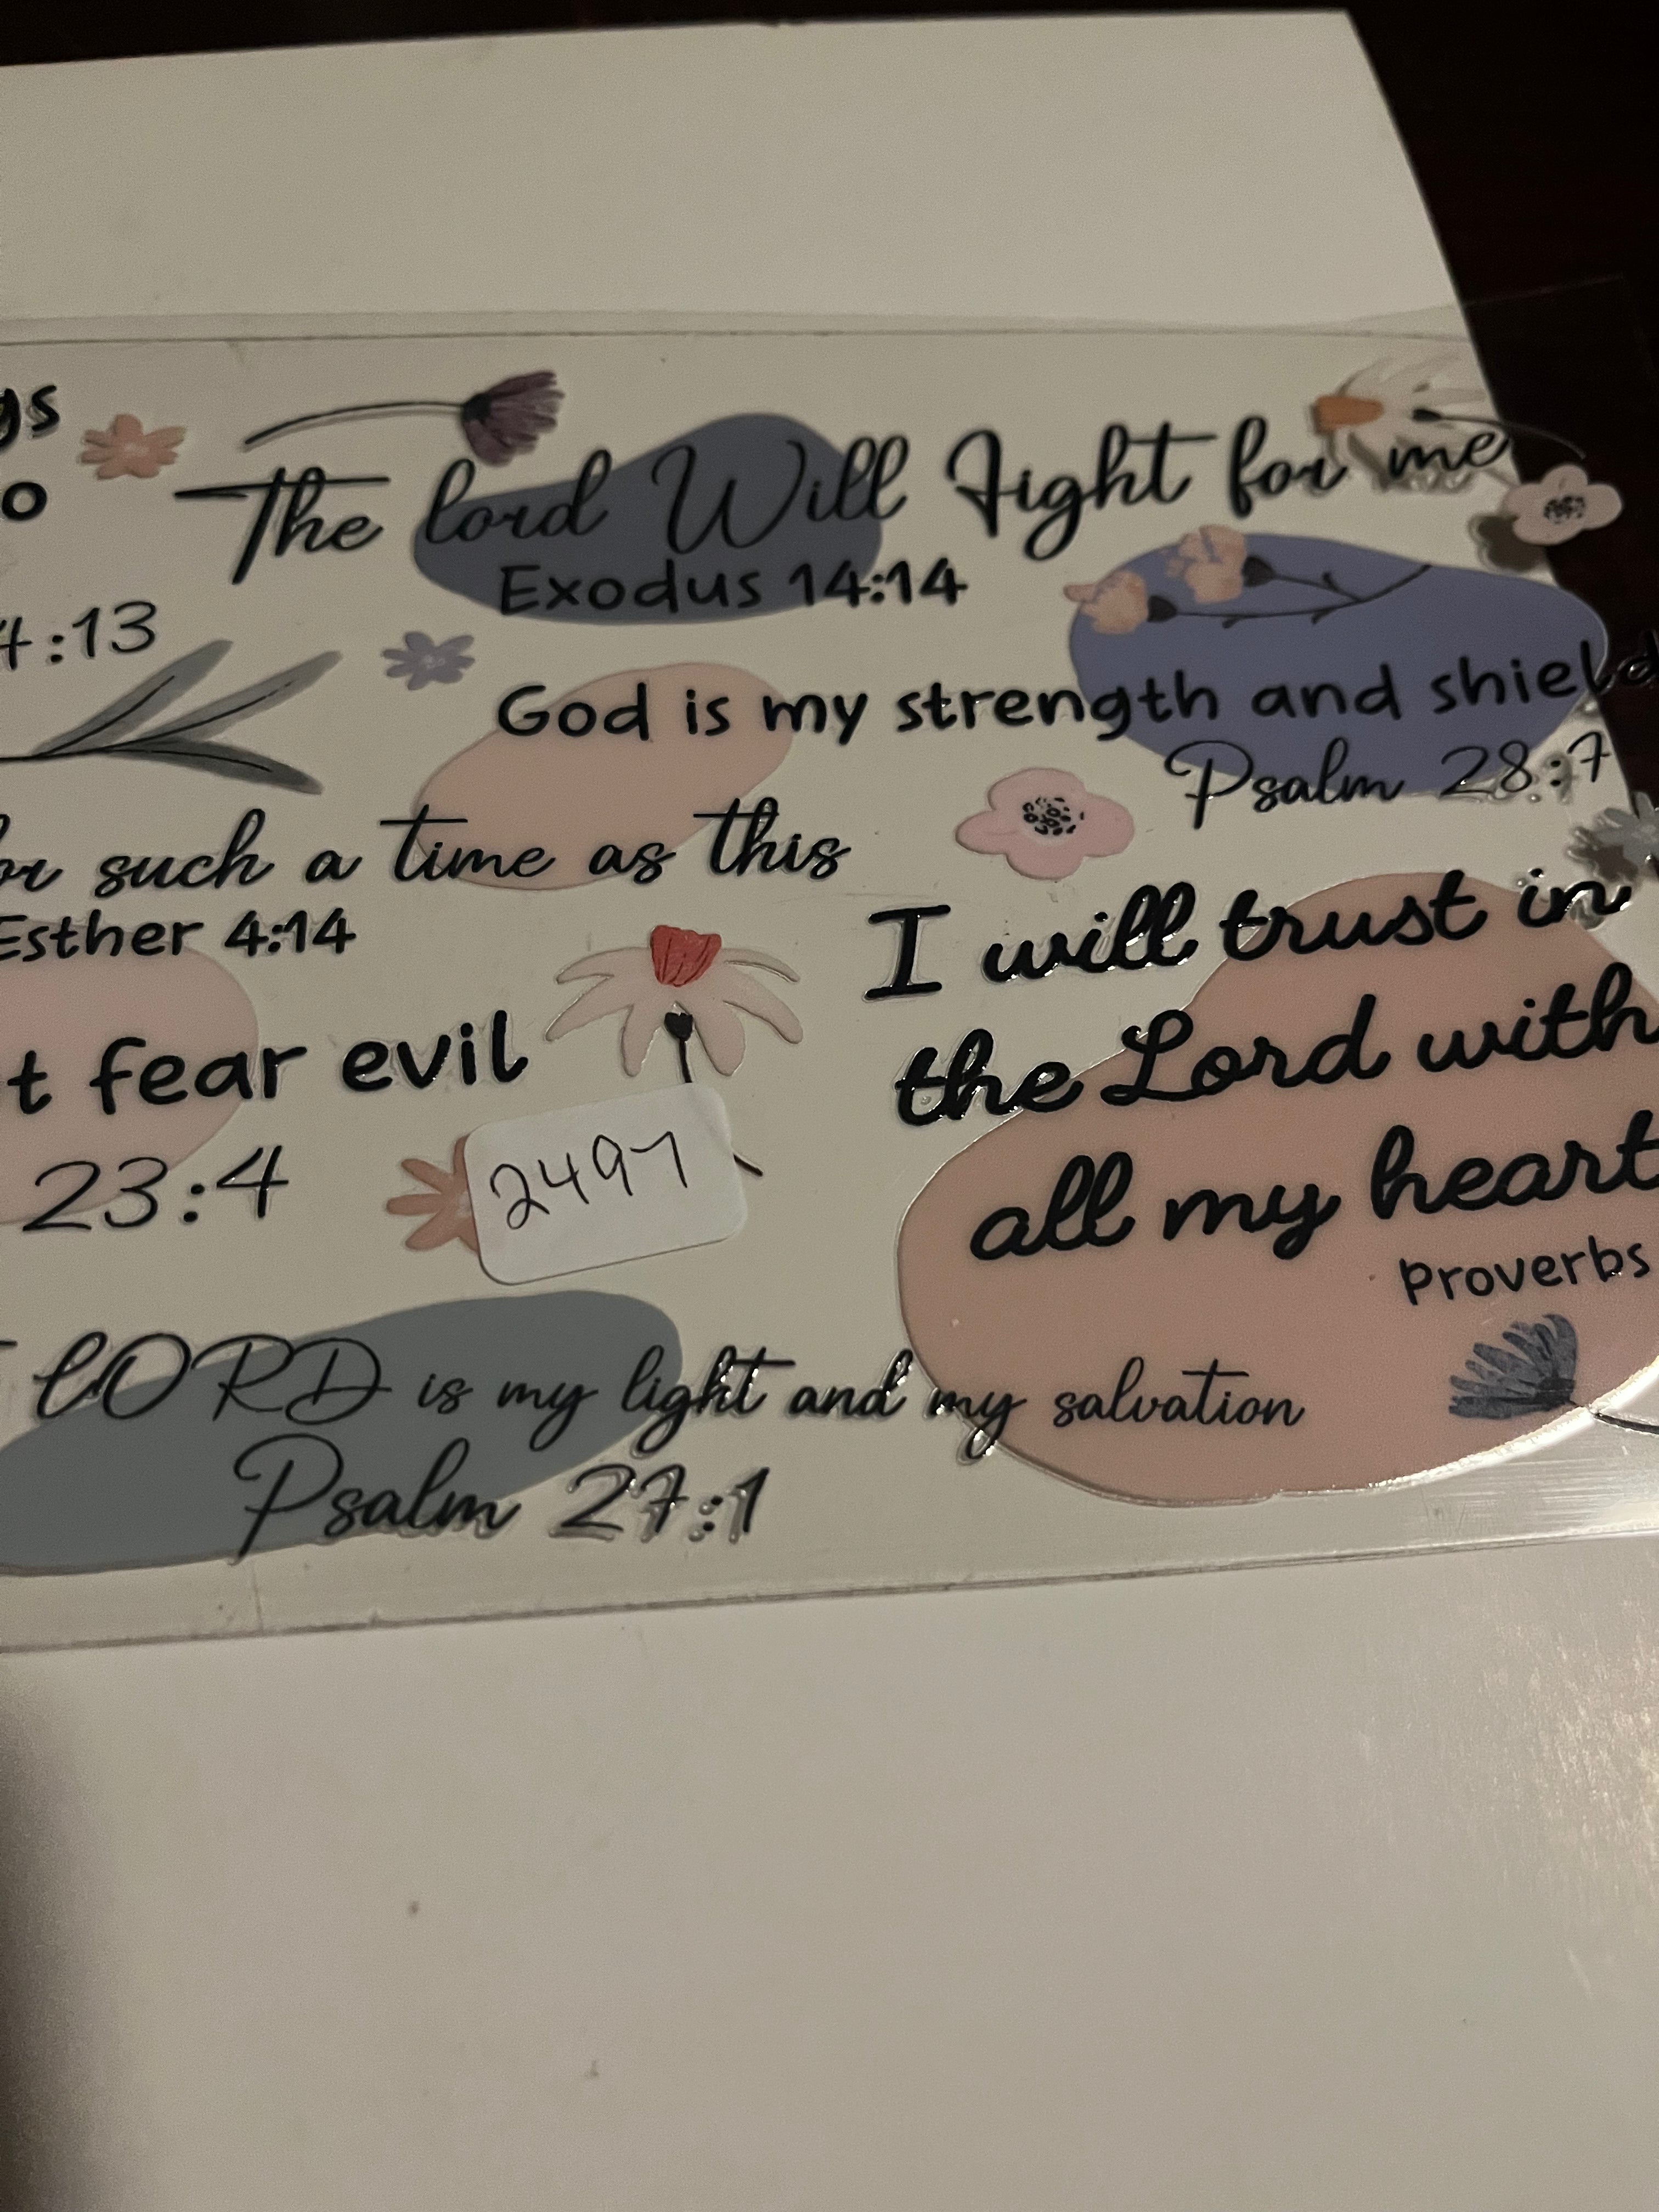 gs
The lord Will Fight for me
o
Exodus 14:14
4:13
God is my strength and shield
Psalm 28:7
or such a time as this
Esther 4:14
I will trust in
the Lord with
all my heart
Proverbs
t fear evil
23:4
2497
LORD is my light and my salvation
Psalm 27:1